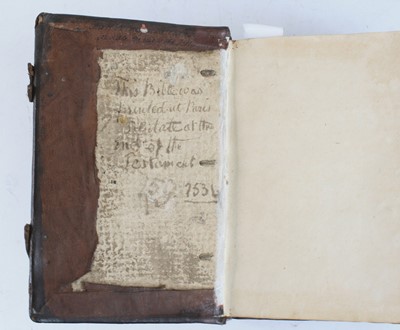 This Bible was
printed at Paris
date at the
end of the
Testament
1531